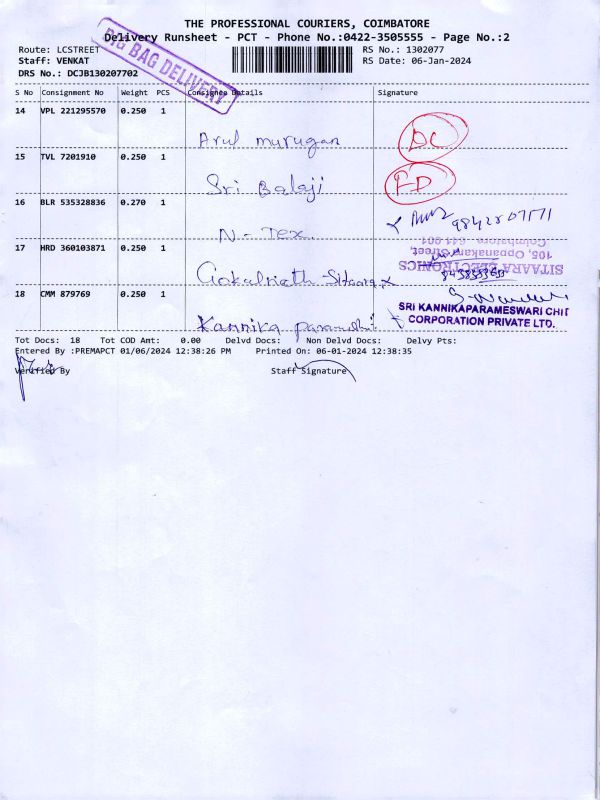 THE PROFESSIONAL COURIERS, COIMBATORE
Delivery Runsheet - PCT - Phone No.:0422-3505555 - Page No.:2
Route: LCSTREET RS No.: 1302077
Staff: VENKAT RS Date: 06-Jan-2024
DRS No.: DCJB130207702
BIG BAG DELIVERY
S No Consignment No Weight PCS Consignee Details Signature
14 VPL 221295570 0.250 1
Arul murugan DC
15 TVL 7201910 0.250 1
Sri Balaji FD
16 BLR 535328836 0.270 1
N-Tex
17 HRD 360103871 0.250 1
Gokulnath Sitaara
SITAARA ELECTRONICS
105, Oppanakara Street,
Coimbatore - 641 001
18 CMM 879769 0.250 1
SRI KANNIKAPARAMESWARI CHIT
CORPORATION PRIVATE LTD.
Kannika
Tot Docs: 18 Tot COD Amt: 0.00 Delvd Docs: Non Delvd Docs: Delvy Pts:
Entered By :PREMAPCT 01/06/2024 12:38:26 PM Printed On: 06-01-2024 12:38:35
Verified By Staff Signature